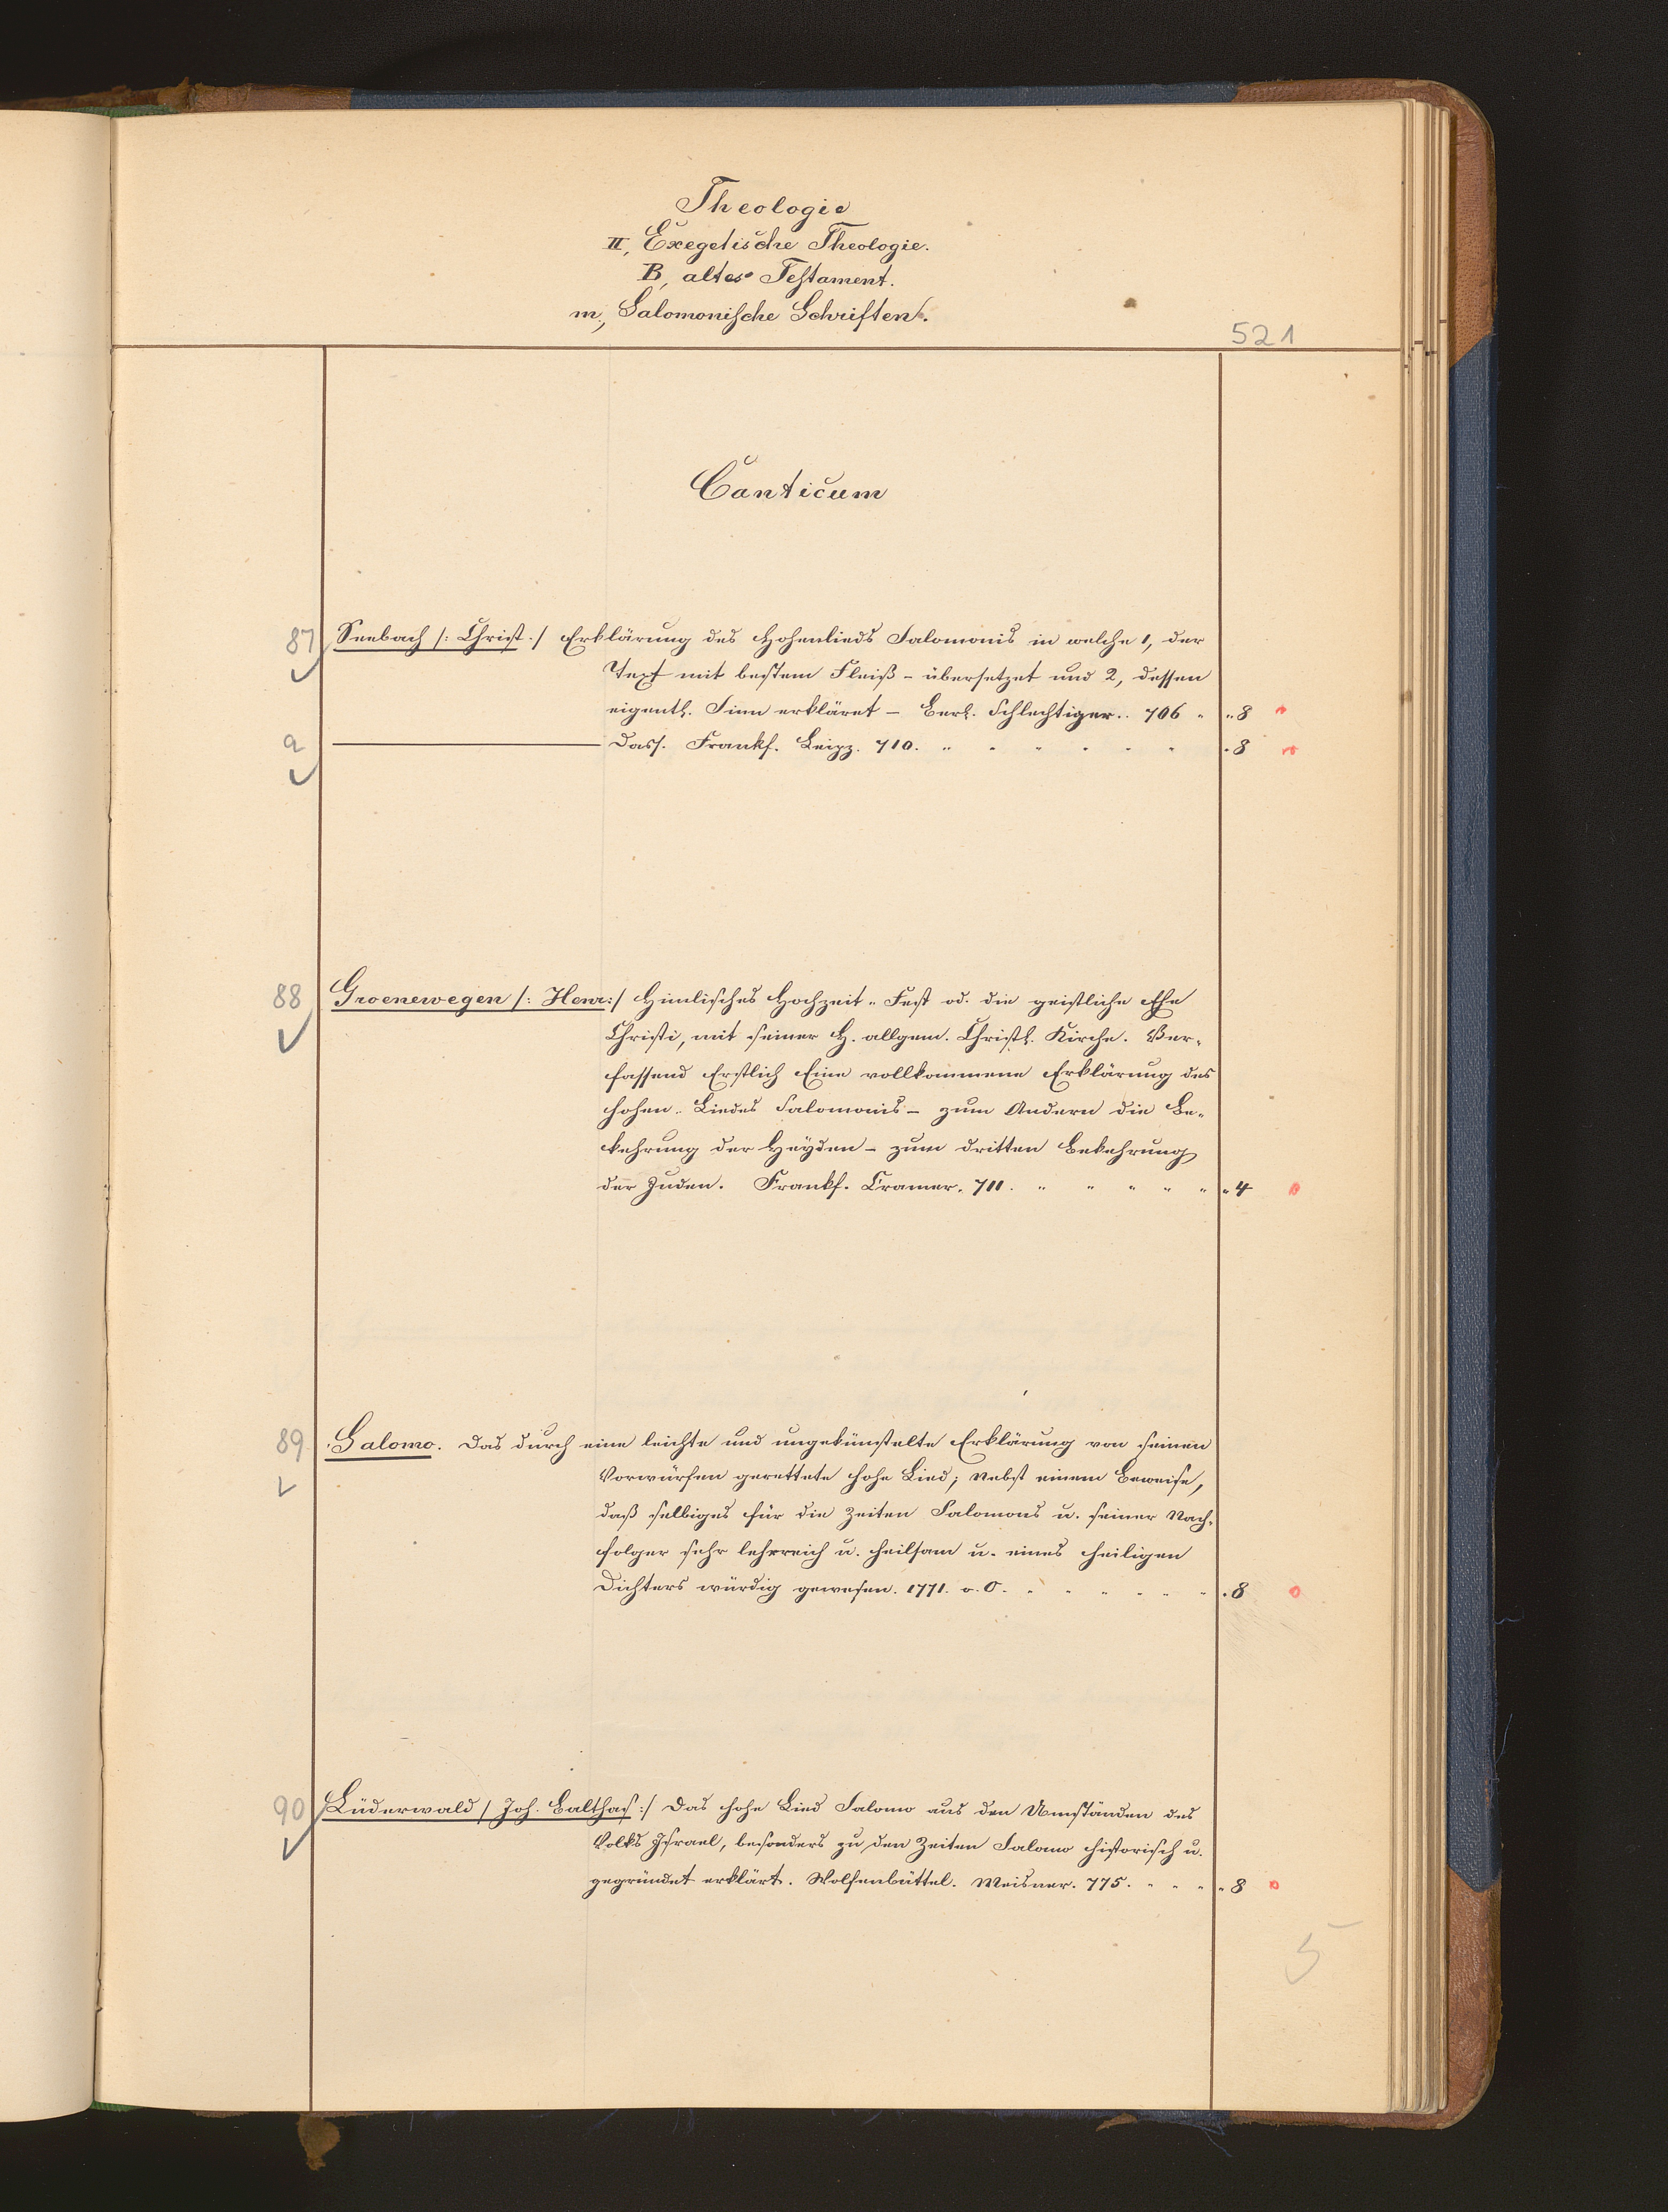 Theologie
II, Exegetische Theologie.
B, altes Testament.
m., Salomonische Schriften.
521
Canticum
87 Seebach /: Christ. / Erklärung des Hohenlieds Salomonis in welche 1, der
Text mit bestem Fleiß - übersetzet und 2, dessen
eigentl. Sinn erkläret - Berl. Schlechtiger.. 706 " " 8
a ——— Dass. Frankf. Leipz. 710. " " " " " " . 8
88 Groenewegen /: Henr: / Himlisches Hochzeit" Fest od. die geistliche Ehe
Christi, mit seiner H. allgem. Christl. Kirche. Ver-
fassend Erstlich Eine vollkommene Erklärung des
hohen" Liedes Salomonis - zum Andern die Be-
kehrung der Heyden - zum dritten Bekehrung
der Juden. Frankf. Cramer. 711. " " " " " " 4
89 Salomo. Das durch eine leichte und ungekünstelte Erklärung von seinen
Vorwürfen gerettete hohe Lied; nebst einem Beweise,
daß selbiges für die Zeiten Salomons u. seiner Nach-
folger sehr lehrreich u. heilsam u. eines heiligen
Dichters würdig gewesen. 1771. o. O. " " " " " " . 8
90 Lüderwald / Joh. Balthas: / Das hohe Lied Salomo aus den Umständen des
Volks Israel, besonders zu den Zeiten Salomo historisch u.
gegründet erklärt. Wolfenbüttel. Meisner. 775. " " " " 8
5